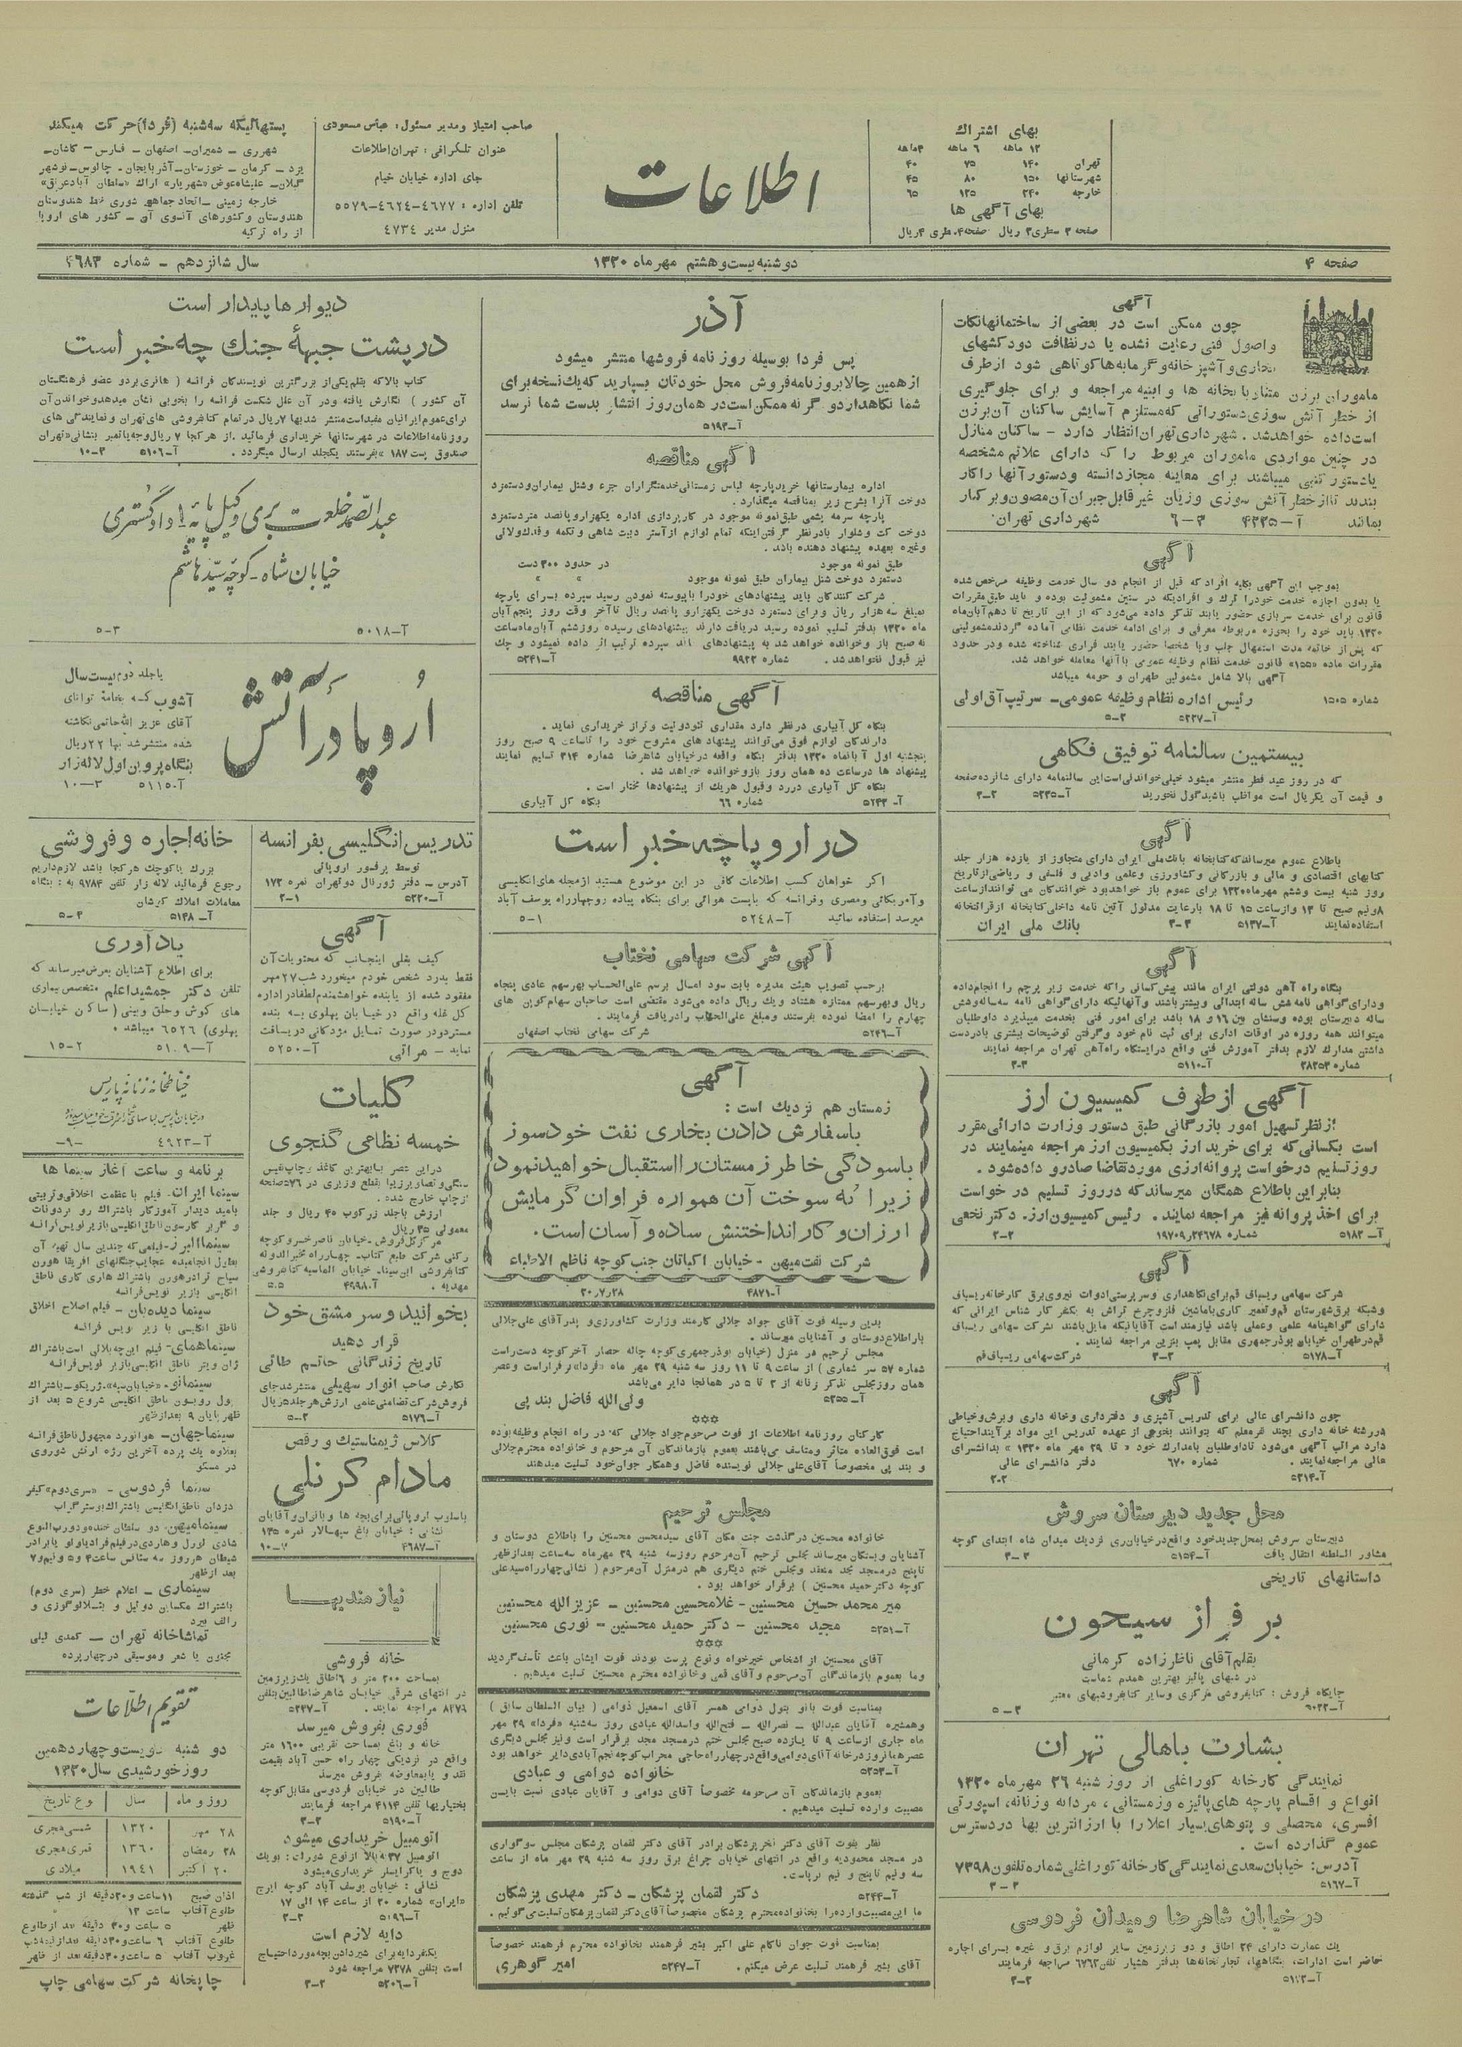 بهای اشتراك
۱۲ ماهه ۶ ماهه ۳ماهه
تهران ۱۴۰ ۷۵ ۴۰
شهرستانها ۱۵۰ ۸۰ ۴۵
خارجه ۲۴۰ ۱۲۵ ۶۵
بهای آگهی ها
صفحه ۲ سطری ۳ ریال صفحه ۴ سطری ۴ ریال
اطلاعات
صاحب امتیاز و مدیر مسئول: عباس مسعودی
عنوان تلگرافی: تهران اطلاعات
جای اداره خیابان خیام
تلفن اداره: ۴۶۷۷-۴۶۲۴-۵۵۷۹
منزل مدیر ۴۷۳۴
پستهائیکه سه‌شنبه (فردا) حرکت میکند
شهرری – شمیران – اصفهان – فارس – کاشان –
یزد – کرمان – خوزستان – آذربایجان – چالوس – نوشهر
گیلان – علیشاه‌عوض «شهریار» اراك «سلطان آباد عراق»
خارجه زمینی – اتحاد جماهیر شوروی خط هندوستان
هندوستان و کشورهای آنسوی آن – کشور های اروپا
از راه ترکیه
صفحه ۴
دوشنبه بیست و هشتم مهر ماه ۱۳۲۰
سال شانزدهم – شماره ۴۶۸۳
آگهی
چون ممکن است در بعضی از ساختمانها نکات
و اصول فنی رعایت نشده یا در نظافت دودکشهای
بخاری و آشپزخانه و گرمابه‌ها کوتاهی شود از طرف
ماموران برزن متناوبا بخانه ها و ابنیه مراجعه و برای جلوگیری
از خطر آتش سوزی دستوراتی که مستلزم آسایش ساکنان آن برزن
است داده خواهد شد . شهرداری تهران انتظار دارد – ساکنان منازل
در چنین مواردی ماموران مربوط را که دارای علائم مشخصه
یا دستور کتبی میباشند برای معاینه مجاز دانسته و دستور آنها را کار
بندند تا از خطر آتش سوزی و زیان غیر قابل جبران آن مصون و برکنار
بمانند آ–۴۲۳۵ ۳–۶ شهرداری تهران
آگهی
بموجب این آگهی بکلیه افرادیکه قبل از انجام دو سال خدمت وظیفه مرخص شده
یا بدون اجازه خدمت خود را ترك و افرادیکه در سنین مشمولیت بوده و باید طبق مقررات
قانون برای خدمت سربازی حضور یابند تذکر داده میشود که از این تاریخ تا دهم آبان ماه
۱۳۲۰ باید خود را بحوزه مربوطه معرفی و برای ادامه خدمت نظامی آماده گردند مشمولینی
که پس از خاتمه مدت استمهال چلب و یا شخصا حضور یابند فراری شناخته شده و در حدود
مقررات ماده «۱۵۵» قانون خدمت نظام وظیفه عمومی با آنها معامله خواهد شد.
آگهی بالا شامل مشمولین طهران و حومه میباشد
شماره ۱۵۰۵ رئیس اداره نظام وظیفه عمومی – سرتیپ آق‌اولی
آ–۵۲۲۷ ۲–۵
بیستمین سالنامه توفیق فکاهی
که در روز عید فطر منتشر میشود خیلی خواندنی است این سالنامه دارای شانزده صفحه
و قیمت آن یکریال است مواظب باشید گول نخورید آ–۵۲۲۵ ۲–۲
آگهی
باطلاع عموم میرساند که کتابخانه بانك ملی ایران دارای متجاوز از یازده هزار جلد
کتابهای اقتصادی و مالی و بازرگانی و کشاورزی و علمی و ادبی و فلسفی و ریاضی از تاریخ
روز شنبه بیست وششم مهرماه ۱۳۲۰ برای عموم باز خواهد بود خوانندگان می توانند از ساعت
۸ ونیم صبح تا ۱۳ و از ساعت ۱۵ تا ۱۸ با رعایت مدلول آئین نامه داخلی کتابخانه از قرائتخانه
استفاده نمایند آ–۵۱۳۷ ۳–۳ بانك ملی ایران
آگهی
بنگاه راه آهن دولتی ایران مانند پیش کسانی را که خدمت زیر پرچم را انجام داده
و دارای گواهی نامه شش ساله ابتدائی و بیشتر باشند و آنهائیکه دارای گواهی نامه سه‌ساله و شش
ساله دبیرستان بوده و سنشان بین ۱۶ و ۱۸ باشد برای امور فنی بخدمت میپذیرد داوطلبان
میتوانند همه روزه در اوقات اداری برای ثبت نام خود و گرفتن توضیحات بیشتری با در دست
داشتن مدارك لازم بدفتر آموزش فنی واقع در ایستگاه راه آهن تهران مراجعه نمایند
شماره ۲۸۲۵۳ آ–۵۱۱۰ ۳–۳
آگهی از طرف کمیسیون ارز
از نظر تسهیل امور بازرگانی طبق دستور وزارت دارائی مقرر
است بکسانی که برای خرید ارز بکمیسیون ارز مراجعه مینمایند در
روز تسلیم درخواست پروانه ارزی مورد تقاضا صادر و داده شود .
بنابراین باطلاع همگان میرساند که در روز تسلیم در خواست
برای اخذ پروانه نیز مراجعه نمایند . رئیس کمیسیون ارز . دکتر نخعی
آ–۵۱۸۲ شماره ۲۴۶۷۸ر۱۹۷۰۹ ۲–۲
آگهی
شرکت سهامی ریسباف قم برای نگاهداری و سرپرستی ادوات نیروی برق کارخانه ریسباف
و شبکه برق شهرستان قم و تعمیر کاری با ماشین فلز و چرخ تراش به یکنفر کار شناس ایرانی که
دارای گواهینامه علمی و عملی باشد نیازمند است آقایانیکه مایل باشند بشرکت سهامی ریسباف
قم در طهران خیابان بوذرجمهری مقابل پمپ بنزین مراجعه نمایند .
آ–۵۱۷۸ ۳–۳ شرکت سهامی ریسباف قم
آگهی
چون دانشسرای عالی برای تدریس آشپزی و دفترداری و خانه داری و برش و خیاطی
در رشته خانه داری بچند نفر معلم که بتوانند بخوبی از عهده تدریس این مواد بر آیند احتیاج
دارد مراتب آگهی می‌شود تا داوطلبان با مدارك خود « تا ۲۹ مهر ماه ۱۳۲۰ » بدانشسرای
عالی مراجعه نمایند . شماره ۶۷۰ دفتر دانشسرای عالی
آ–۵۲۱۴ ۲–۲
محل جدید دبیرستان سروش
دبیرستان سروش بمحل جدید خود واقع در خیابان ری نزدیك میدان شاه ابتدای کوچه
مشاور السلطنه انتقال یافت آ–۵۱۵۴ ۳–۳
داستانهای تاریخی
بر فراز سیحون
بقلم آقای ناظرزاده کرمانی
در شبهای پائیز بهترین همدم شماست
جایگاه فروش : کتابفروشی مرکزی و سایر کتابفروشیهای معتبر
آ–۶۰۲۲ ۲–۵
بشارت باهالی تهران
نمایندگی کارخانه کوراغلی از روز شنبه ۲۶ مهر ماه ۱۳۲۰
انواع و اقسام پارچه های پائیزه و زمستانی ، مردانه و زنانه، اسپورتی
افسری، محصلی و پتوهای بسیار اعلا را با ارزانترین بها در دسترس
عموم گذارده است .
آدرس: خیابان سعدی نمایندگی کارخانه کوراغلی شماره تلفون ۷۳۹۸
آ–۵۱۶۷ ۳–۳
در خیابان شاهرضا و میدان فردوسی
یك عمارت دارای ۲۴ اطاق و دو زیرزمین سایر لوازم برق و غیره برای اجاره
حاضر است ادارات، بنگاهها، تجارتخانه‌ها بدفتر هشیار تلفن ۶۷۶۳ مراجعه فرمایند
۲–۲
آذر
پس فردا بوسیله روز نامه فروشها منتشر میشود
از همین حالا بروزنامه‌فروش محل خودتان بسپارید که یك نسخه برای
شما نگاهدارد و گرنه ممکن است در همان روز انتشار بدست شما نرسد
آ–۵۱۹۳
آگهی مناقصه
اداره بیمارستانها خرید پارچه لباس زمستانی خدمتگزاران جزء و شنل بیماران و دستمزد
دوخت آنرا بشرح زیر بمناقصه میگذارد .
پارچه سرمه پشمی طبق نمونه موجود در کارپردازی اداره یکهزار و پانصد متر دستمزد
دوخت کت و شلوار با در نظر گرفتن اینکه تمام لوازم از آستر دبیت شاهی و تکمه وقزك و لائی
وغیره بعهده پیشنهاد دهنده باشد .
طبق نمونه موجود در حدود ۳۰۰ دست
دستمزد دوخت شنل بیماران طبق نمونه موجود » »
شرکت کنندگان باید پیشنهادهای خود را با پیوسته نمودن رسید سپرده برای پارچه
بمبلغ سه هزار ریال و برای دستمزد دوخت یکهزار و پانصد ریال تا آخر وقت روز پنجم آبان
ماه ۱۳۲۰ بدفتر تسلیم نموده رسید دریافت دارند پیشنهادهای رسیده روز ششم آبان ماه ساعت
نه صبح باز و خوانده خواهد شد به پیشنهادهای فاقد سپرده ترتیب اثر داده نمیشود و چك
نیز قبول نخواهد شد . شماره ۹۹۲۲ آ–۵۲۴۱
آگهی مناقصه
بنگاه کل آبیاری در نظر دارد مقداری تئودولیت و تراز خریداری نماید .
دارندگان لوازم فوق می‌توانند پیشنهاد های مشروح خود را تا ساعت ۹ صبح روز
پنجشنبه اول آبانماه ۱۳۲۰ بدفتر بنگاه واقعه در خیابان شاهرضا شماره ۳۱۴ تسلیم نمایند
پیشنهاد ها در ساعت ده همان روز باز و خوانده خواهد شد .
بنگاه کل آبیاری در رد و قبول هر یك از پیشنهادها مختار است .
آ–۵۲۴۳ شماره ۶۶ بنگاه کل آبیاری
در اروپا چه خبر است
اگر خواهان کسب اطلاعات کافی در این موضوع هستید از مجله های انگلیسی
و آمریکائی و مصری و فرانسه که با پست هوائی برای بنگاه پیاده رو چهارراه یوسف آباد
میرسد استفاده نمائید آ–۵۲۴۸ ۱–۵
آگهی شرکت سهامی نختاب
برحسب تصویب هیئت مدیره بابت سود امسال برسم علی‌الحساب بهر سهم عادی پنجاه
ریال و بهر سهم ممتازه هشتاد و یك ریال داده میشود مقتضی است صاحبان سهام کوپن های
چهارم را امضا نموده بفرستند و مبلغ علی‌الحساب را دریافت فرمایند .
آ–۵۲۴۶ شرکت سهامی نختاب اصفهان
آگهی
زمستان هم نزدیك است :
با سفارش دادن بخاری نفت خودسوز
با سودگی خاطر زمستان را استقبال خواهید نمود
زیرا نه سوخت آن همواره فراوان گرمایش
ارزان و کار انداختنش ساده و آسان است .
شرکت نفت میهن – خیابان اکباتان جنب کوچه ناظم الاطباء
آ–۴۸۷۱ ۲۰ر۷ر۲۸
بدین وسیله فوت آقای جواد جلالی کارمند وزارت کشاورزی و پدر آقای علی جلالی
را باطلاع دوستان و آشنایان میرساند .
مجلس ترحیم در منزل (خیابان بوذرجمهری کوچه چاله حصار آخر کوچه دست راست
شماره ۵۷ سر شماری) از ساعت ۹ تا ۱۱ روز سه شنبه ۲۹ مهر ماه «فردا» برقرار است و عصر
همان روز مجلس تذکر زنانه از ۲ تا ۵ در همانجا دایر می‌باشد
آ–۵۲۵۵ ولی‌الله فاضل بند پی
***
کارکنان روزنامه اطلاعات از فوت مرحوم جواد جلالی که در راه انجام وظیفه بوده
است فوق‌العاده متاثر و متاسف می‌باشند بعموم بازماندگان آن مرحوم و خانواده محترم جلالی
و بند پی مخصوصاً آقای علی جلالی نویسنده فاضل و همکار جوان خود تسلیت میدهند
مجلس ترحیم
خانواده محسنین درگذشت جنت مکان آقای سید محسن محسنین را باطلاع دوستان و
آشنایان و بستگان میرساند مجلس ترحیم آن مرحوم روز سه شنبه ۲۹ مهر ماه سه ساعت بعد از ظهر
تا پنج در مسجد مجد منعقد و مجلس ختم دیگری هم در منزل آن مرحوم ( نشانی چهارراه سیدعلی
کوچه دکتر حمید محسنین ) برقرار خواهد بود .
میر محمد حسین محسنین – غلامحسین محسنین – عزیز الله محسنین
آ–۵۲۵۱ مجید محسنین – دکتر حمید محسنین – نوری محسنین
***
آقای محسنین از اشخاص خیرخواه و نوع پرست بودند فوت ایشان باعث تأسف گردید
و ما بعموم بازماندگان آن مرحوم و آقای قمی و خانواده محترم محسنین تسلیت میدهیم .
بمناسبت فوت بانو بتول دوامی همسر آقای اسمعیل دوامی ( بیان السلطان سابق )
و همشیره آقایان عبدالله – نصرالله – فتح‌الله و اسدالله عبادی روز سه‌شنبه «فردا» ۲۹ مهر
ماه جاری از ساعت ۹ تا یازده صبح مجلس ختم در مسجد مجد برقرار است و نیز مجلس دیگری
عصر همان روز در خانه آقای دوامی واقع در چهارراه حاجی محراب کوچه نجم آبادی دایر خواهد بود
آ–۵۲۵۲ خانواده دوامی و عبادی
بعموم بازماندگان آن مرحومه مخصوصاً آقای دوامی و آقایان عبادی نسبت باین
مصیبت وارده تسلیت میدهیم .
نظر بفوت آقای دکتر فخر پزشکان برادر آقای دکتر لقمان پزشکان مجلس سوگواری
در مسجد محمودیه واقع در انتهای خیابان چراغ برق روز سه شنبه ۲۹ مهر ماه از ساعت
سه و نیم تا پنج و نیم برپاست .
آ–۵۲۴۴ دکتر لقمان پزشکان – دکتر مهدی پزشکان
ما این مصیبت وارده را بخانواده محترم پزشکان مخصوصاً آقای دکتر لقمان پزشکان تسلیت می‌گوئیم .
بمناسبت فوت جوان ناکام علی اکبر بشیر فرهمند بخانواده محترم فرهمند خصوصاً
آقای بشیر فرهمند تسلیت عرض میکنم . آ–۵۲۴۷ امیر گوهری
دیوارها پایدار است
در پشت جبههٔ جنك چه خبر است
کتاب بالا که بقلم یکی از بزرگترین نویسندگان فرانسه ( هانری بردو عضو فرهنگستان
آن کشور ) نگارش یافته و در آن علل شکست فرانسه را بخوبی نشان میدهد و خواندن آن
برای عموم ایرانیان مفید است منتشر شد بها ۷ ریال در تمام کتابفروشی های تهران و نمایندگی های
روزنامه اطلاعات در شهرستانها خریداری فرمائید . از هر کجا ۷ ریال وجه یا تمبر بنشانی «تهران
صندوق پست ۱۸۷» بفرستند یکجلد ارسال میگردد . آ–۵۱۰۶ ۳–۱۰
عبدالصمد خلعت بری وکیل پایه ۱ دادگستری
خیابان شاه – کوچه سید هاشم
آ–۵۰۱۸ ۳–۵
اروپا در آتش
یا جلد دوم بیست سال
آشوب که بخامهٔ توانای
آقای عزیز الله حاتمی نگاشته
شده منتشر شد بها ۲۲ ریال
بنگاه پروین اول لاله زار
آ–۵۱۱۵ ۳–۱۰
تدریس انگلیسی بفرانسه
توسط پرفسور اروپائی
آدرس – دفتر ژورنال دوتهران نمره ۱۷۳
آ–۵۲۲۰ ۱–۲
آگهی
کیف بغلی اینجانب که محتویات آن
فقط بدرد شخص خودم میخورد شب ۲۷ مهر
مفقود شده از یابنده خواهشمندم لطفاً در اداره
کل غله واقع در خیابان پهلوی به بنده
مسترد در صورت تمایل مژدگانی دریافت
نماید – مرآتی آ–۵۲۵۰
کلیات
خمسه نظامی گنجوی
در این عصر با بهترین کاغذ و چاپ نفیس
سنگی و تصاویر زیبا بقطع وزیری در ۵۷۶ صفحه
از چاپ خارج شده .
ارزش با جلد زرکوب ۴۵ ریال و جلد
معمولی ۳۵ ریال
مرکز کل فروش – خیابان ناصرخسرو کوچه
رکنی شرکت طبع کتاب – چهارراه مخبرالدوله
کتابفروشی ابن سینا – خیابان الماسیه کتابفروشی
مهدیه . آ–۴۹۹۸ ۵–۵
بخوانید و سر مشق خود
قرار دهید
تاریخ زندگانی حاتم طائی
نگارش صاحب انوار سهیلی منتشر شد جای
فروش شرکت تضامنی علمی ارزش هر جلد ۵ ریال
آ–۵۱۷۶ ۲–۵
کلاس ژیمناستیك و رقص
مادام کرنلی
باسلوب اروپائی برای بچه ها و بانوان و آقایان
نشانی : خیابان باغ سپهسالار نمره ۱۳۵
آ–۴۶۸۷ ۷–۱۰
نیازمندیها
خانه فروشی
بمساحت ۲۰۰ متر و ۶ اطاق یك زیرزمین
در انتهای شرقی خیابان شاهرضا طالبین بتلفن
۸۲۷۹ مراجعه نمایند . آ–۵۲۲۷
فوری بفروش میرسد
خانه و باغ بمساحت تقریبی ۱۶۰۰ متر
واقع در نزدیکی چهار راه حسن آباد بقیمت
نقد و یا بمعاوضه فروش میرسد
طالبین در خیابان فردوسی مقابل کوچه
بختیاریها تلفن ۴۱۱۴ مراجعه فرمایند
آ–۵۱۹۰ ۳–۳
اتومبیل خریداری میشود
اتومبیل ۳۷ ببالا از نوع شورلت : بویك
دوج و یا کرایسلر خریداری میشود
نشانی : خیابان یوسف آباد کوچه ایرج
«ایران» شماره ۲۰ از ساعت ۱۴ الی ۱۷
آ–۵۱۹۶ ۲–۳
دایه لازم است
یکنفر دایه برای شیر دادن بچه مورد احتیاج
است بتلفن ۷۲۷۸ مراجعه شود
آ–۵۲۰۶ ۲–۳
خانه اجاره و فروشی
بزرك یا کوچك هر کجا باشد لازم داریم
رجوع فرمائید لاله زار تلفن ۹۷۸۴ به : بنگاه
معاملات املاك کیهان
آ–۵۱۴۸ ۴–۵
یادآوری
برای اطلاع آشنایان بعرض میرساند که
تلفن دکتر جمشید اعلم متخصص بیماری
های گوش و حلق و بینی ( ساکن خیابان
پهلوی) ۶۵۲۶ میباشد .
آ–۵۱۰۹ ۲–۱۵
خیاطخانه زنانه پاریس
آ–۴۹۲۳ –۹–
برنامه و ساعت آغاز سینما ها
سینما ایران – فیلم با عظمت اخلاقی و تربیتی
بامید دیدار آموزگار باشتراك رو برد دونات
و گریر گارسون ناطق انگلیسی با زیر نویس فرانسه
سینما البرز – فیلمی که چندین سال تهیه آن
بطول انجامیده عجایب جنگلهای افریقا هورن
سیاح ترادرهورن باشتراك هاری کاری ناطق
انگلیسی با زیر نویس فرانسه
سینما دیده‌بان – فیلم اصلاح اخلاق
ناطق انگلیسی با زیر نویس فرانسه
سینماهمای – فیلم این چه بلائی است باشتراك
ژان ویتر ناطق انگلیسی با زیر نویس فرانسه
سینمانو – «خیابان سپه» – ژریکو – باشتراك
پول روبسون ناطق انگلیسی شروع ۵ بعد از
ظهر پایان ۹ بعد از ظهر
سینماجهان – هوانورد مجهول ناطق فرانسه
بعلاوه یك پرده آخرین رژه ارتش شوروی
در مسکو
سینما فردوسی – «سری دوم» کیفر
دزدان ناطق انگلیسی باشتراك بوستر کراب
سینمامیهن – دو سلطان خنده و دو رب‌النوع
شادی لورل و هاردی در فیلم فراد یاولو یا برادر
شیطان هر روز سه سئانس ساعت ۳ و ۵ و نیم و ۷
بعد از ظهر
سینماری – اعلام خطر (سری دوم)
باشتراك مکسان دوئیل و بتلاگوزی و
رالف برد
تماشاخانه تهران – کمدی لیلی
مجنون با شعر و موسیقی در چهار پرده
تقویم اطلاعات
دو شنبه دویست و چهاردهمین
روز خورشیدی سال ۱۳۲۰
روز و ماه سال نوع تاریخ
۲۸ مهر ۱۳۲۰ شمسی هجری
۲۸ رمضان ۱۳۶۰ قمری هجری
۲۰ اکتبر ۱۹۴۱ میلادی
اذان صبح ۱۱ ساعت و ۲۰ دقیقه از شب گذشته
طلوع آفتاب ساعت ۱۲
ظهر ۵ ساعت و ۳۰ دقیقه بعد از طلوع
طلوع آفتاب ۶ ساعت و ۳۰ دقیقه بعد از نصف شب
غروب آفتاب ۵ ساعت و ۳۰ دقیقه بعد از ظهر
چاپخانه شرکت سهامی چاپ